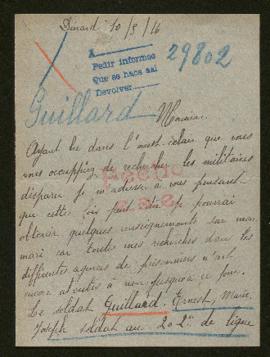 Dinard 10/8/16
A
Pedir informes
Que se haga así
Devolver
29802
Guillard
Monsieur
Ayant lu dans l'ouest-éclair que vous
vous occuppiez de recherche les militaires
disparu je m'adresse a vous pensant
que cette fois peut être je pourrai
obtenir quelques renseignements sur mon
mari car toutes mes recherches dans les
differentes agences de prisonniers n'ont
encore abouties a rien jusqu'a ce jour.
Le soldat Guillard Ernest, Marie,
Joseph soldat au 202e de ligne